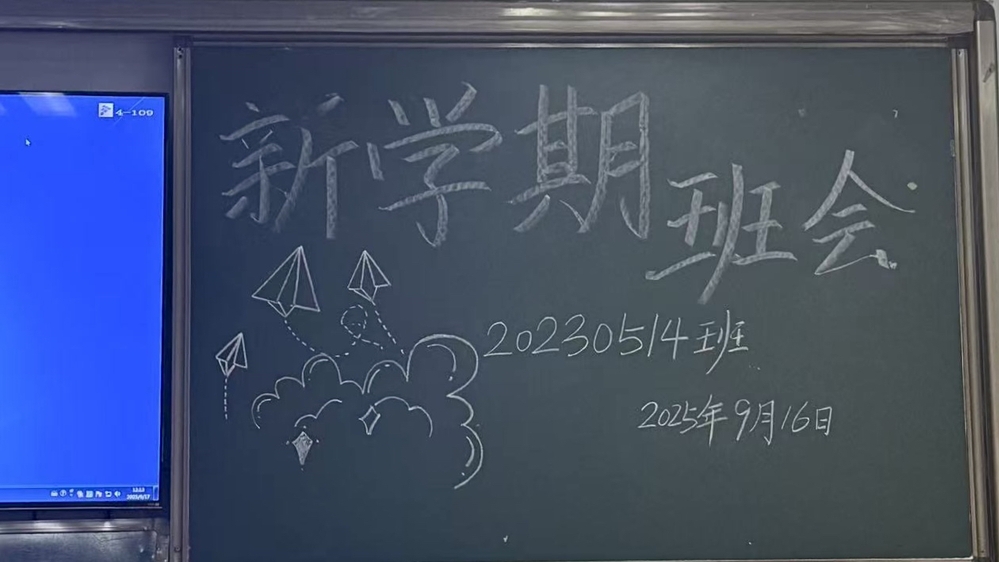 新学期
班会
20230514班
2025年9月16日
4-109